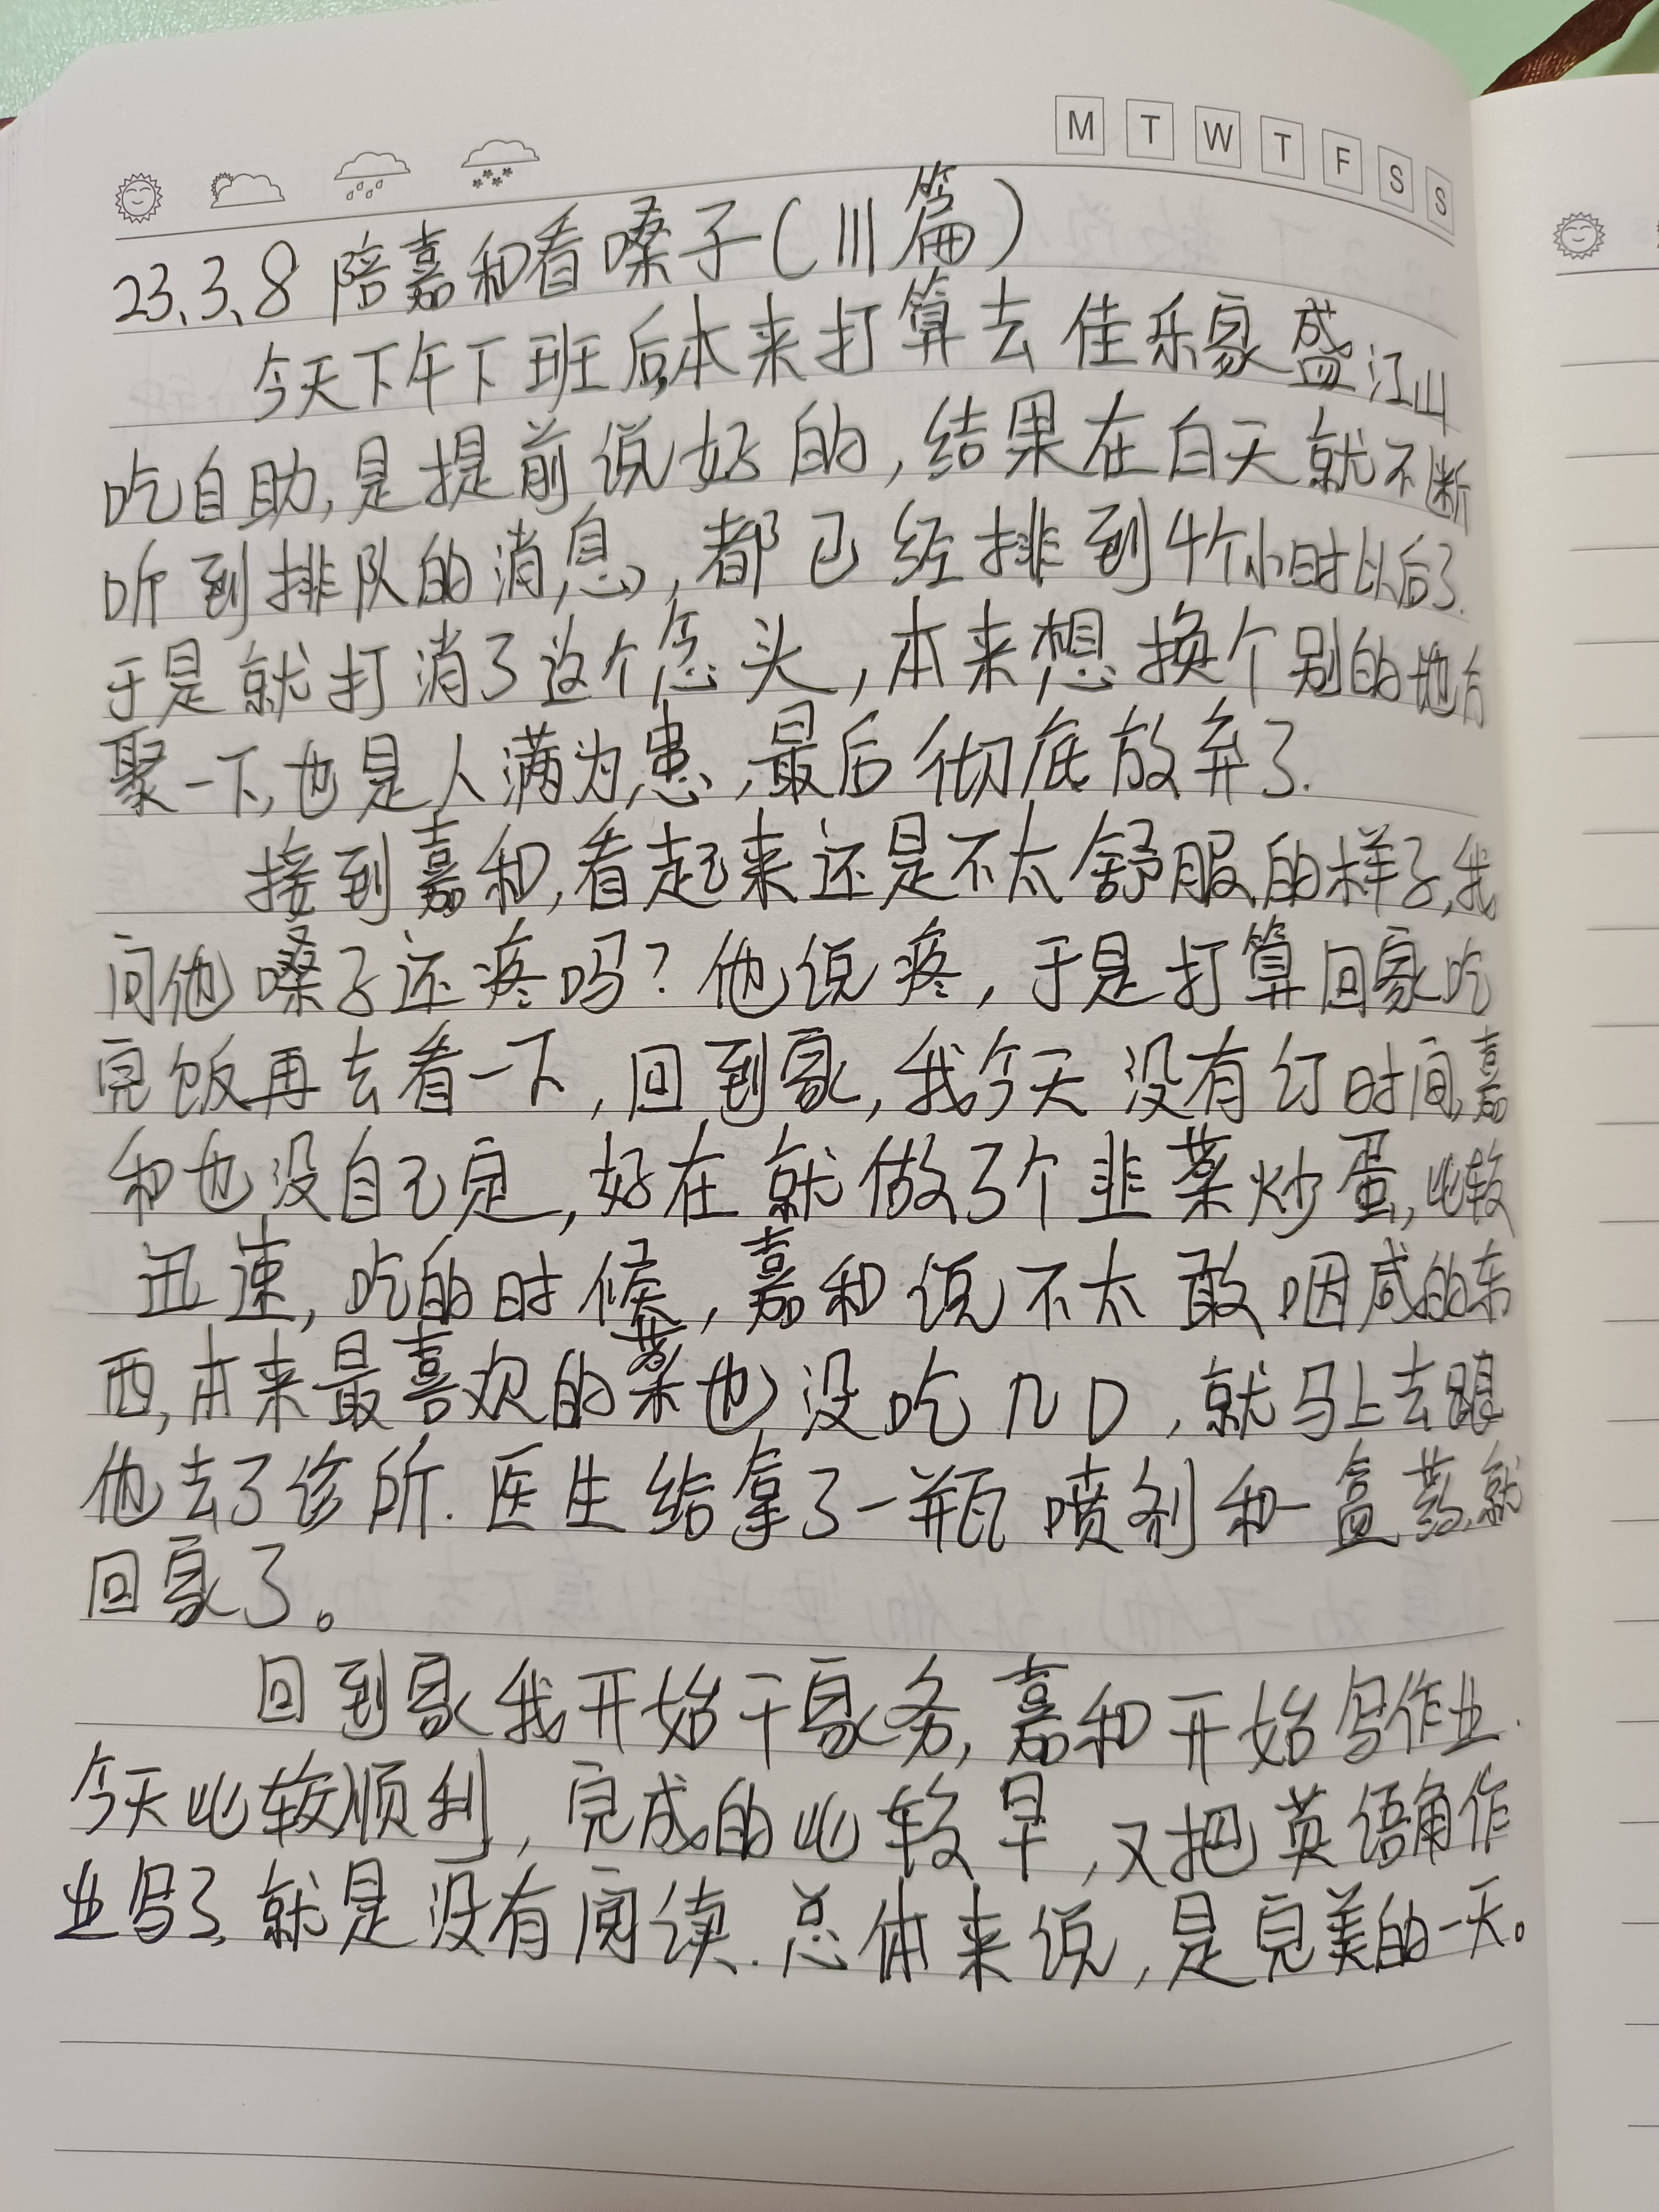 M T W T F S S
23.3.8 陪嘉和看嗓子(111篇)
今天下午下班后本来打算去佳乐家盛江山
吃自助,是提前说好的,结果在白天就不断
听到排队的消息,都已经排到4个小时以后了.
于是就打消了这个念头,本来想换个别的地方
聚一下,也是人满为患,最后彻底放弃了.
接到嘉和,看起来还是不太舒服的样子,我
问他嗓子还疼吗?他说疼,于是打算回家吃
完饭再去看一下,回到家,我今天没有订时间,嘉
和也没自己定,好在就做了个韭菜炒蛋,比较
迅速,吃的时候,嘉和说不太敢咽咸的东
西,本来最喜欢的菜也没吃几口,就马上去跟
他去了诊所.医生给拿了一瓶喷剂和一盒药,就
回家了。
回到家我开始干家务,嘉和开始写作业.
今天比较顺利,完成的比较早,又把英语角作
业写了,就是没有阅读.总体来说,是完美的一天。